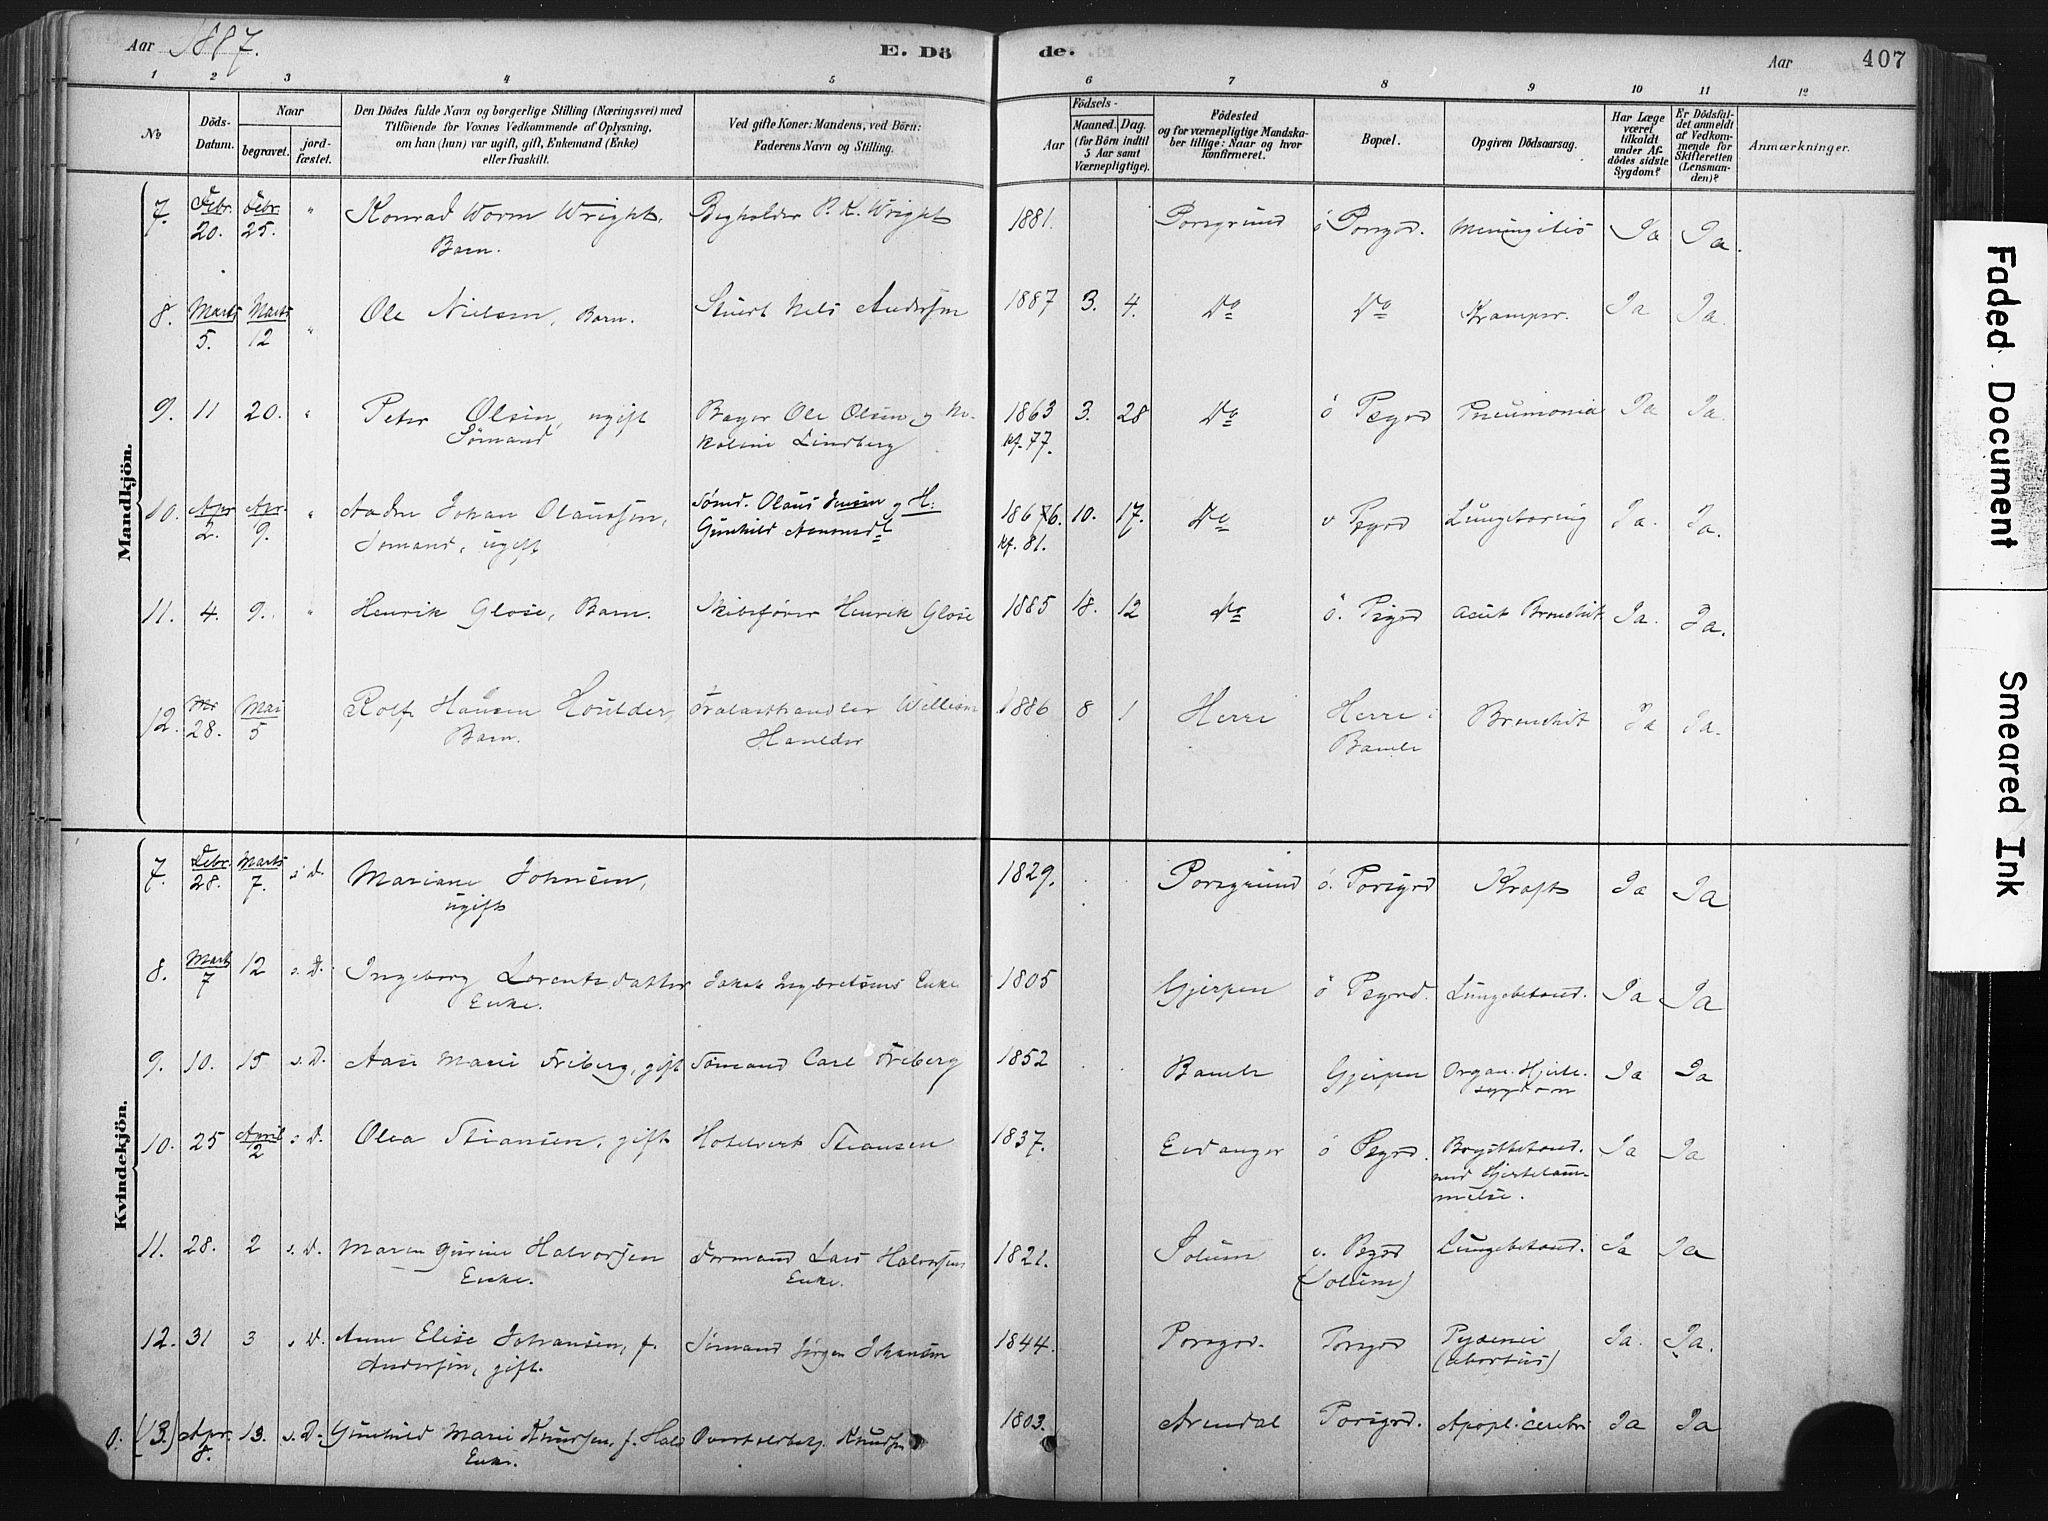 Aar 1887. E. Dö de. Aar 407
1 2 3 4 5 6 7 8 9 10 11 12
No
Döds-Datum.
Naar
begravet.
jordfæstet.
Den Dödes fulde Navn og borgerlige Stilling (Næringsvei) med
Tilföiende for Voxnes Vedkommende af Oplysning,
om han (hun) var ugift, gift, Enkemand (Enke)
eller fraskilt.
Ved gifte Koner: Mandens, ved Börn:
Faderens Navn og Stilling.
Aar
Födsels-
Maaned. Dag.
(for Börn indtil
5 Aar samt
Værnepligtige).
Födested
og for værnepligtige Mandska-
ber tillige: Naar og hvor
konfirmeret.
Bopæl.
Opgiven Dödsaarsag.
Har Læge
været
tilkaldt
under Af-
dödes sidste
Sygdom?
Er Dödsfal-
det anmeldt
af Vedkom-
mende for
Skifteretten
(Lensman-
den)?
Anmærkninger.
Mandkjön.
7. Febr. 20. Febr. 25. " Konrad Worm Wright, P. K. Wright 1881. Porsgrund ö Porsgrd. Meningitis Ja Ja.
Barn.
8. Marts 5. Marts 12 " Ole Nielsen, Barn. Stuert Nels Andersen 1887 3. 4. Do Do Kramper. Ja Ja.
9. 11 20. " Peter Olsen, ugift Bager Ole Olsen og Ni- 1863 3. 28 Do ö Psgrd Pneumonia Ja Ja.
Sømand koline Lindberg kf. 77.
10. Apr 2. Apr. 9. " Johan Olaussen, Sømd. Olaus Jensen og H. 10. 17. Do v Psgrd Lungetæring Ja. Ja.
Sømand, ugift Gunhild kf. 81.
11. 4. 9. " Henrik Glose, Barn. Skibsfører Henrik Glose 1885 18. 12 Do ö. Psgrd Acut Bronchit Ja. Ja.
12. 28. Mai 5 Rolf Hansen Houlder, Trælasthandler William 1886 8 1 Herre Herre i Bronchit Ja Ja.
Barn. Houlder Bamle
Kvindekjön.
7. Febr. 28. Marts 7. s. D. Mariane Johnsen, 1829. Porsgrund ö. Porsgrd Kræft Ja Ja
ugift
8. Marts 7 12 s. D. Ingeborg Lorentsdatter Jakob Ingbretsens Enke 1805 Gjerpen ö Psgrd. Lungebetænd. Ja Ja
Enke.
9. 10. 15 s. D. Aase Marie Friberg, gift Sømand Carl Friberg 1852 Bamle Gjerpen Organ. Hjerte- Ja Ja
sygdom
10. 25 April 2 s. D. Olea Stiansen, gift Hotelvert Stiansen 1837. Eidanger ö Psgrd. Brystbetænd. Ja Ja
med Hjertelam-
melse.
11. 28. 2 s. D. Maren Gurine Halvorsen Formand Lars Halvorsens 1821. Solum v. Psgrd Lungebetænd. Ja Ja
Enke. Enke. (Solum)
12. 31 3 s. D. Anne Elise Johansen, f. Sømand Jørgen Johansen 1844. Porsgrd. Porsgrd Pyæmi Ja. Ja.
Andersen, gift. (abortus)
(13.) Apr. 8. 13. s. D. Gunhild Marie Knudsen, f. Hald Knudsen 1803. Arendal Porsgrd. Apopl. cerebri Ja Ja
Enke.
Faded Document
Smeared Ink